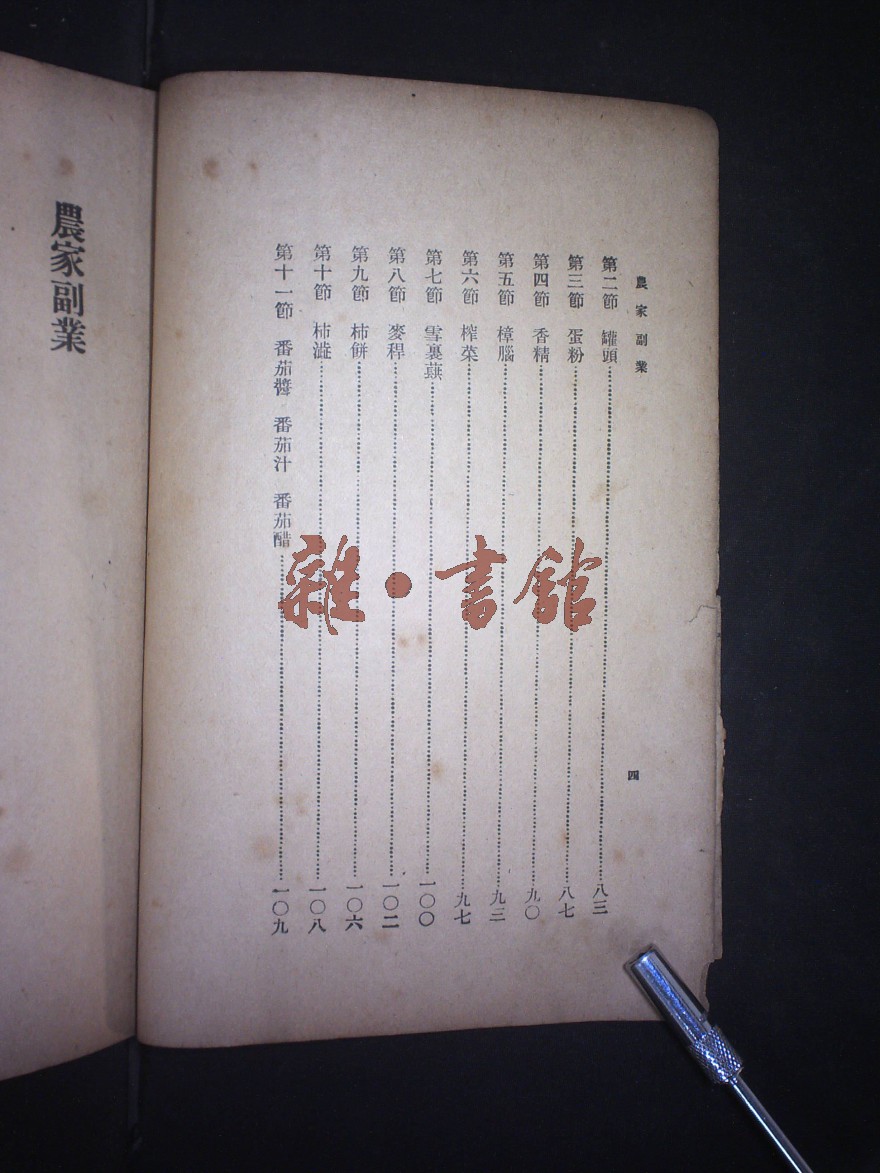 農家副業
四
第二節　罐頭……八三
第三節　蛋粉……八七
第四節　香精……九〇
第五節　樟腦……九三
第六節　榨菜……九七
第七節　雪裏蕻……一〇〇
第八節　麥稈……一〇二
第九節　柿餅……一〇六
第十節　柿澁……一〇八
第十一節　番茄醬　番茄汁　番茄醋……一〇九
農家副業
雜·書館